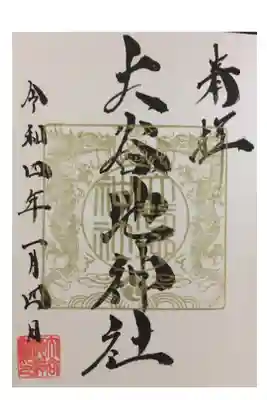 奉拝
大谷地神社
令和四年一月四日